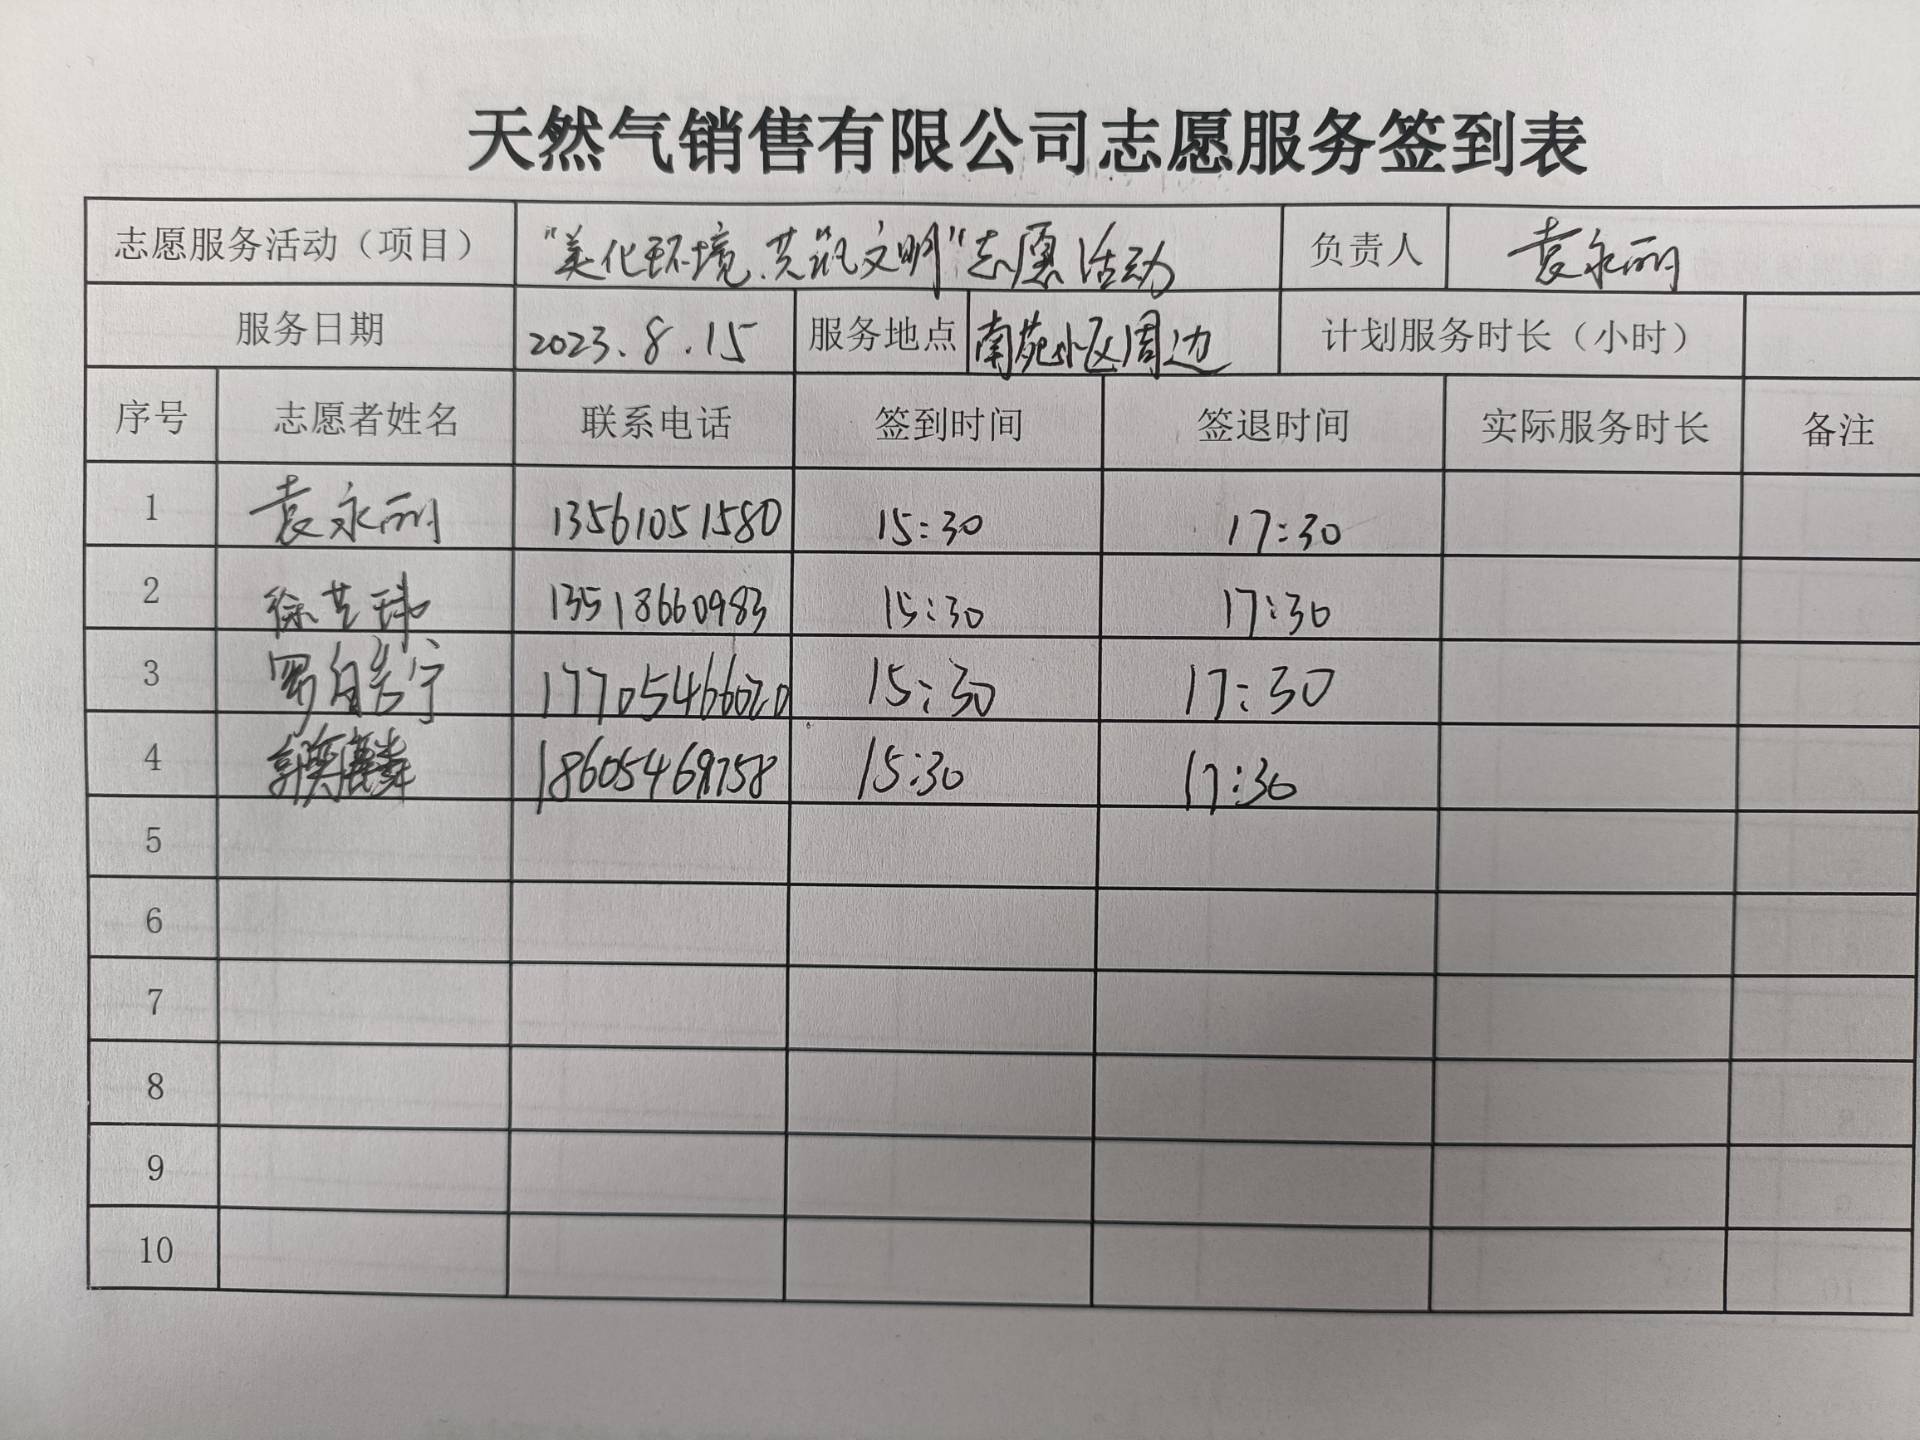 天然气销售有限公司志愿服务签到表
志愿服务活动（项目） “美化环境、共筑文明”志愿活动 负责人 袁永丽
服务日期 2023.8.15 服务地点 南苑小区周边 计划服务时长（小时）
序号 志愿者姓名 联系电话 签到时间 签退时间 实际服务时长 备注
1 袁永丽 13561051580 15:30 17:30
2 13518660983 15:30 17:30
3 17705466020 15:30 17:30
4 15:30 17:30
5
6
7
8
9
10